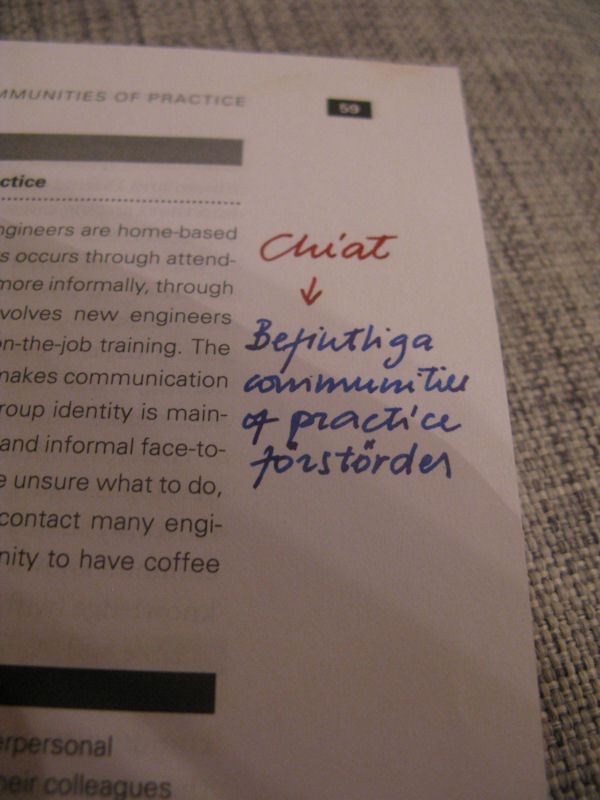 MMUNITIES OF PRACTICE 59
ctice
ngineers are home-based
s occurs through attend-
more informally, through
volves new engineers
on-the-job training. The
makes communication
roup identity is main-
and informal face-to-
e unsure what to do,
contact many engi-
nity to have coffee
erpersonal
heir colleagues
Chiat
↓
Befintliga
communities
of practice
förstördes